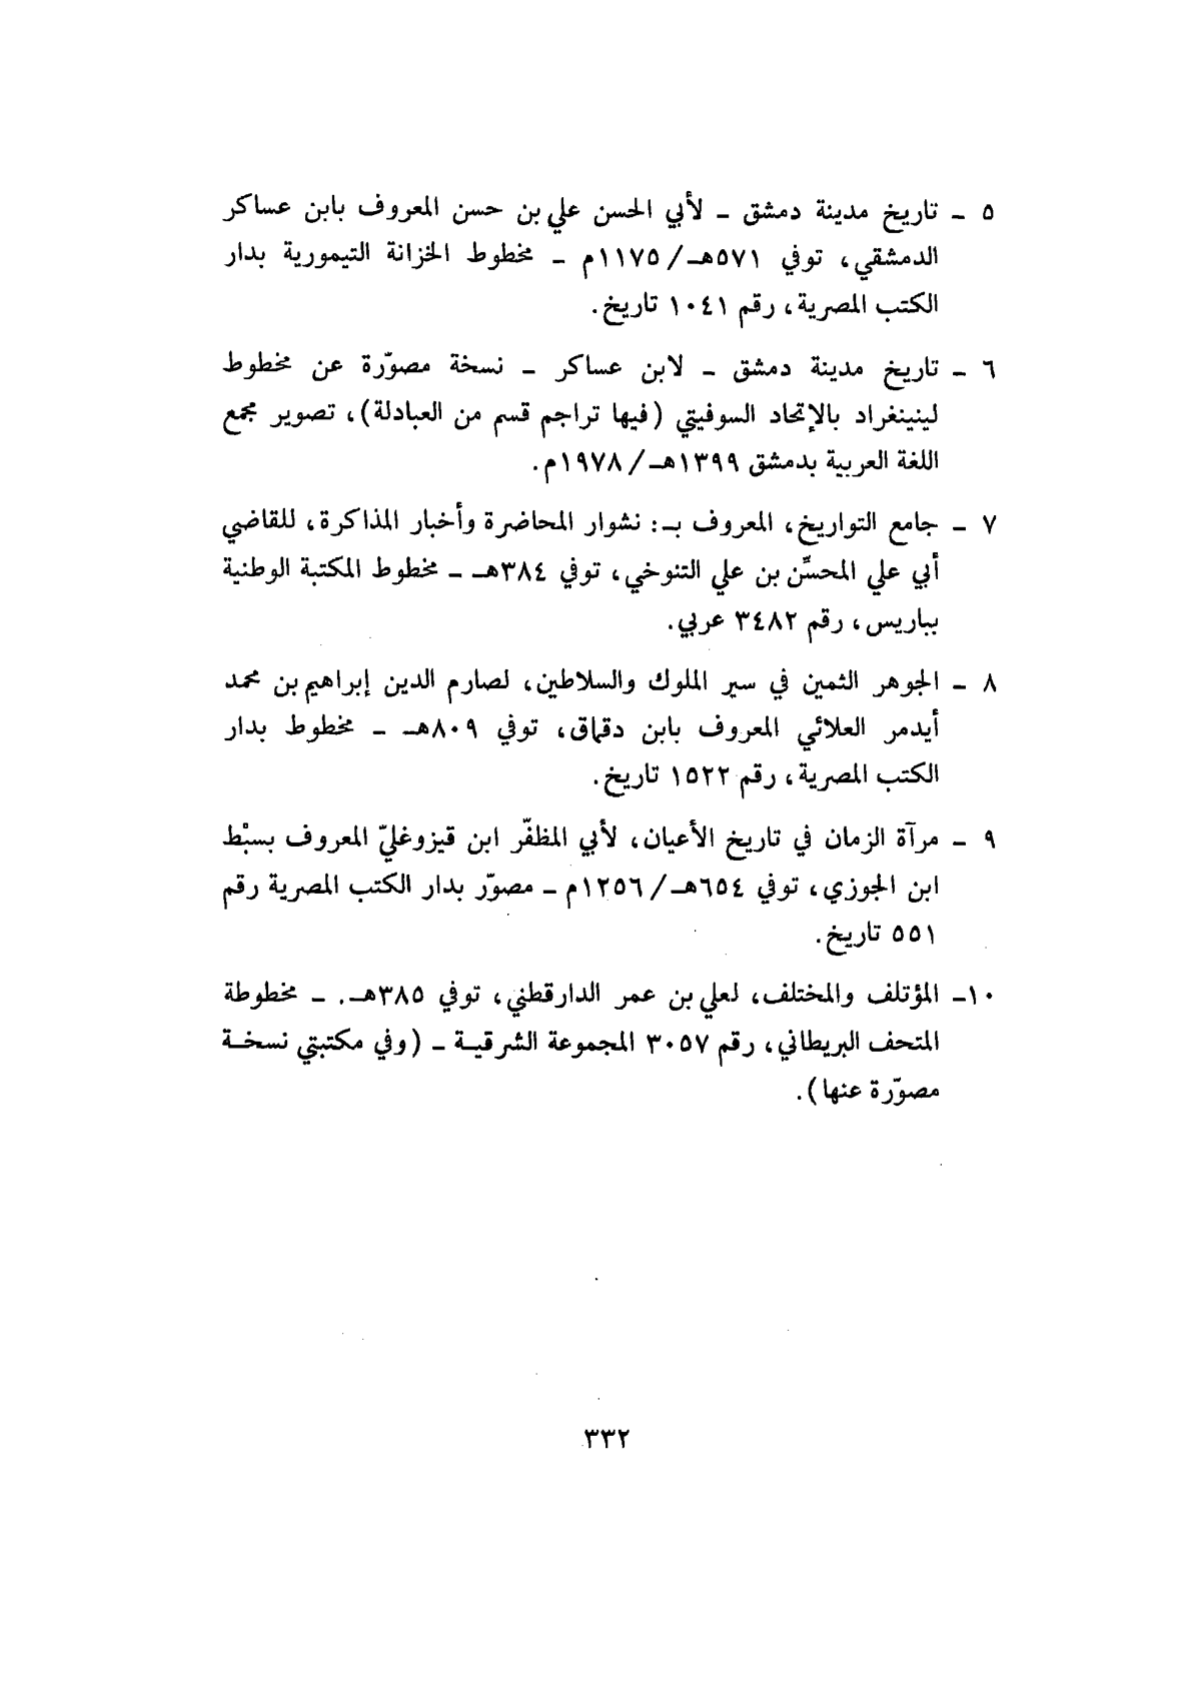 ٥ ـ تاريخ مدينة دمشق ـ لأبي الحسن علي بن حسن المعروف بابن عساكر
الدمشقي، توفي ٥٧١هـ/١١٧٥م ـ مخطوط الخزانة التيمورية بدار
الكتب المصرية، رقم ١٠٤١ تاريخ.
٦ ـ تاريخ مدينة دمشق ـ لابن عساكر ـ نسخة مصوّرة عن مخطوط
لينينغراد بالإتحاد السوفيتي (فيها تراجم قسم من العبادلة)، تصوير مجمع
اللغة العربية بدمشق ١٣٩٩هـ/١٩٧٨م.
٧ ـ جامع التواريخ، المعروف بـ: نشوار المحاضرة وأخبار المذاكرة، للقاضي
أبي علي المحسِّن بن علي التنوخي، توفي ٣٨٤هـ ـ مخطوط المكتبة الوطنية
بباريس، رقم ٣٤٨٢ عربي.
٨ ـ الجوهر الثمين في سير الملوك والسلاطين، لصارم الدين إبراهيم بن محمد
أيدمر العلائي المعروف بابن دقماق، توفي ٨٠٩هـ ـ مخطوط بدار
الكتب المصرية، رقم ١٥٢٢ تاريخ.
٩ ـ مرآة الزمان في تاريخ الأعيان، لأبي المظفّر ابن قيزوغليّ المعروف بسبْط
ابن الجوزي، توفي ٦٥٤هـ/١٢٥٦م ـ مصوّر بدار الكتب المصرية رقم
٥٥١ تاريخ.
١٠ـ المؤتلف والمختلف، لعلي بن عمر الدارقطني، توفي ٣٨٥هـ. ـ مخطوطة
المتحف البريطاني، رقم ٣٠٥٧ المجموعة الشرقيـة ـ (وفي مكتبتي نسخـة
مصوّرة عنها).
٣٣٢